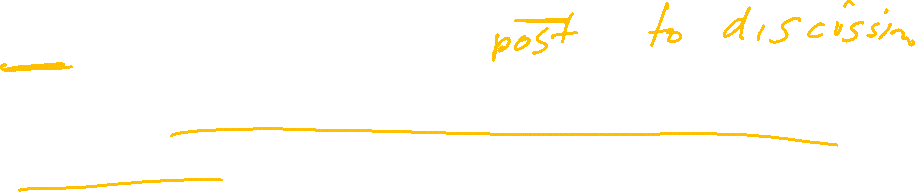 post to discussion